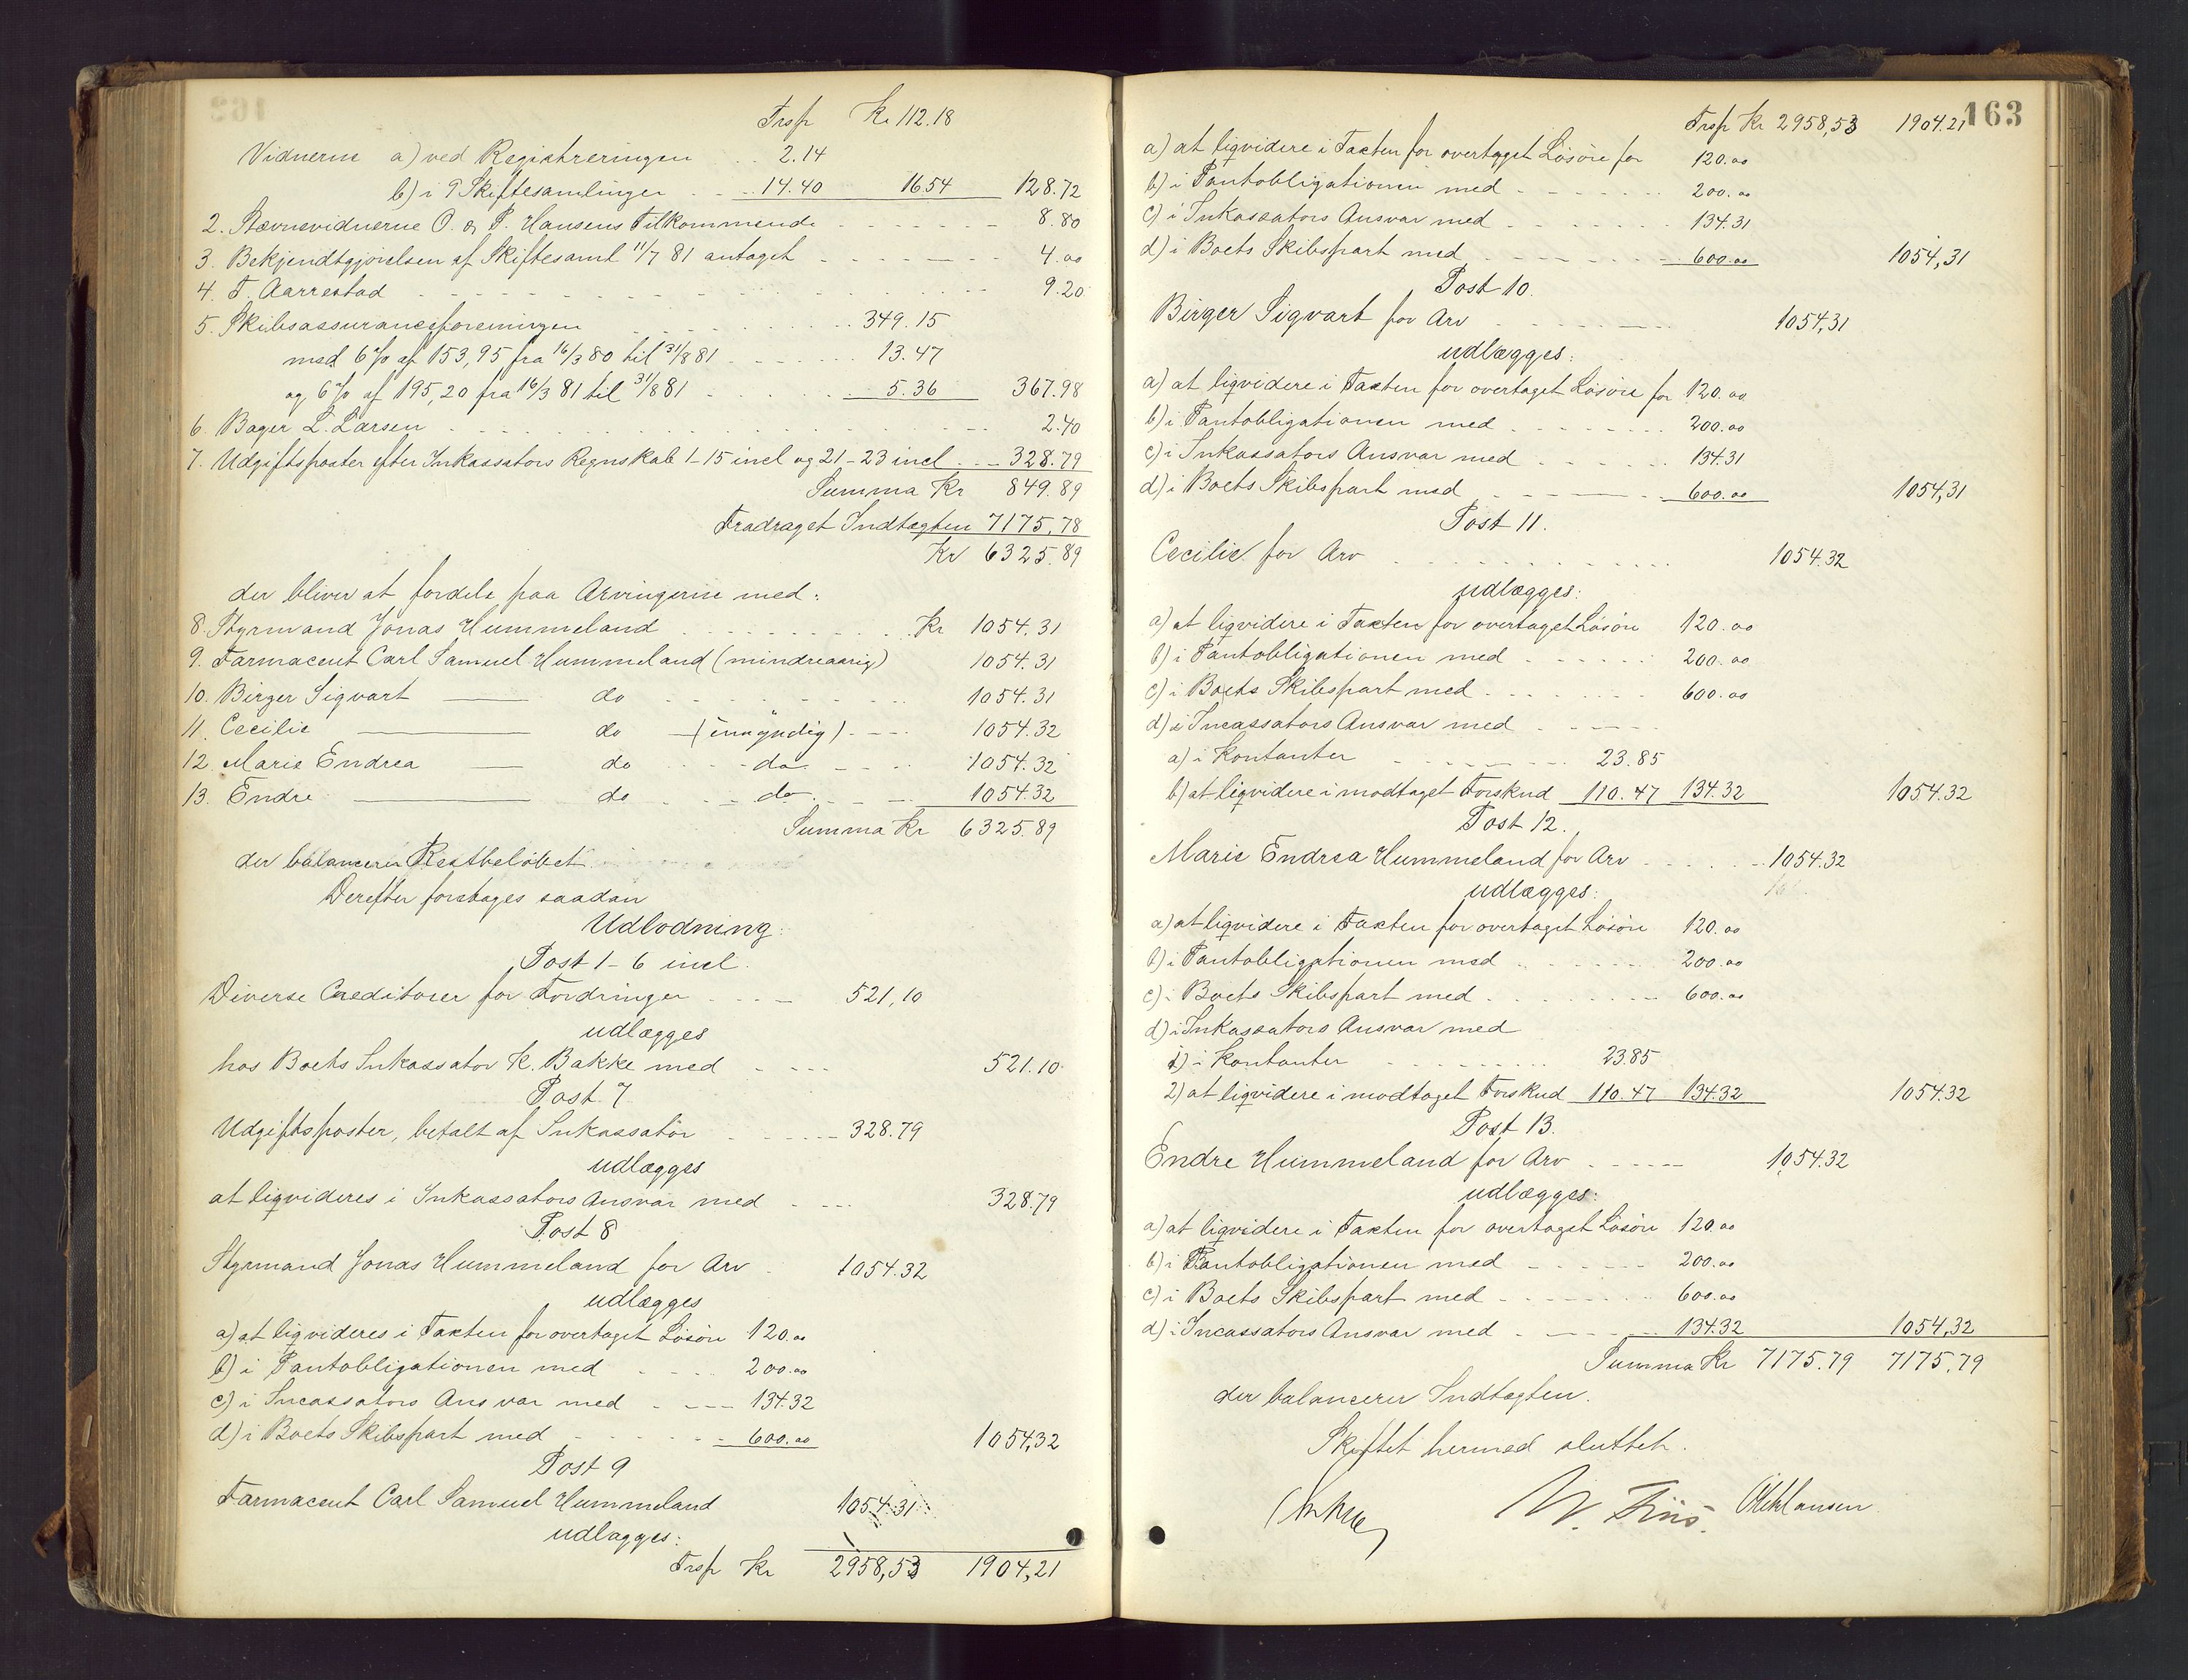 Trsp Kr 112.18
Vidnerne a) ved Registreringen 2.14
b) i 9 Skiftesamlinger 14.40 16 54 128.72
2. Stævnevidnerne O. og P. Hansens Tilkommende 8.80
3. Bekjendtgjørelsen af Skiftesamt 11/7 81 antaget 4.00
4. T. Aarrestad 9.20
5. Skibsassuranceforeningen 349.15
med 6 % af 153,95 fra 16/3 80 til 31/8 81 13.47
og 6 % af 195,20 fra 16/3 81 til 31/8 81 5.36 367.98
6. Bager L. Larsen 2.40
7. Udgiftsposter efter Inkassators Regnskab 1-15 incl og 21-23 incl 328.79
Summa Kr 849.89
Fradraget Indtægten 7175,78
Kr 6325.89
der bliver at fordele paa Arvingerne med:
8. Styrmand Jonas Hummeland Kr 1054.31
9. Farmaceut Carl Samuel Hummeland (mindreaarig) 1054.31
10. Birger Sigvart do 1054.31
11. Cecilie do (umyndig) 1054.32
12. Marie Endrea do do 1054.32
13. Endre do do 1054.32
Summa Kr 6325.89
der balancerer Restbeløbet
Derefter foretages saadan
Udlodning:
Post 1-6 incl.
Diverse Creditorer for Fordringer 521,10
udlægges
hos Boets Inkassator K. Bakke med 521.10
Post 7
Udgiftsposter, betalt af Inkassator 328.79
udlægges
at liqvideres i Inkassators Ansvar med 328.79
Post 8
Styrmand Jonas Hummeland for Arv 1054.32
udlægges
a) at liqvideres i Taxten for overtaget Løsøre 120.00
b) i Pantobligationen med 200.00
c) i Incassators Ansvar med 134.32
d) i Boets Skibspart med 600.00 1054,32
Post 9
Farmaceut Carl Samuel Hummeland 1054.31
udlægges:
Trsp Kr 2958,53 1904,21
163
Trsp Kr 2958,53 1904.21
a) at liqvidere i Taxten for overtaget Løsøre for 120.00
b) i Pantobligationen med 200.00
c) i Inkassators Ansvar med 134.31
d) i Boets Skibspart med 600.00 1054,31
Post 10.
Birger Sigvart for Arv 1054,31
udlægges:
a) at liqvidere i Taxten for overtaget Løsøre for 120.00
b) i Pantobligationen med 200.00
c) i Inkassators Ansvar med 134.31
d) i Boets Skibspart med 600.00 1054,31
Post 11.
Cecilie for Arv 1054.32
udlægges:
a) at liqvidere i Taxten for overtaget Løsøre 120.00
b) i Pantobligationen med 200.00
c) i Boets Skibspart med 600.00
d) i Incassators Ansvar med
a) i Kontanter 23.85
b) at liqvidere i modtaget Forskud 110.47 134.32 1054.32
Post 12.
Marie Endrea Hummeland for Arv 1054.32
udlægges:
a) at liqvidere i Taxten for overtaget Løsøre 120.00
b) i Pantobligationen med 200.00
c) i Boets Skibspart med 600.00
d) i Inkassators Ansvar med
1) i Kontanter 23.85
2) at liqvidere i modtaget Forskud 110.47 134.32 1054.32
Post 13.
Endre Hummeland for Arv 1054.32
udlægges:
a) at liqvidere i Taxten for overtaget Løsøre 120.00
b) i Pantobligationen med 200.00
c) i Boets Skibspart med 600.00
d) i Incassators Ansvar med 134.32 1054,32
Summa Kr 7175.79 7175.79
der balancerer Indtægten.
Skiftet hermed sluttet.